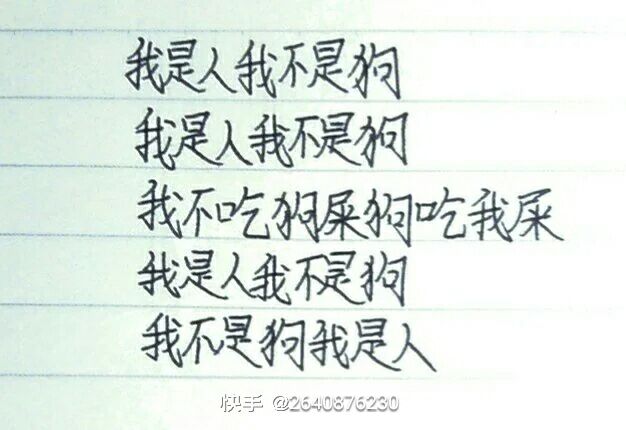 我是人我不是狗
我是人我不是狗
我不吃狗屎狗吃我屎
我是人我不是狗
我不是狗我是人
快手 @2640876230